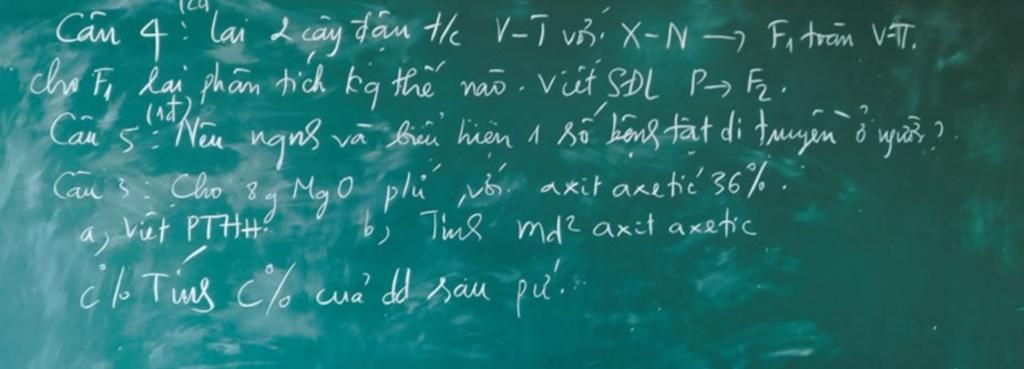 (2đ)
Câu 4: lai 2 cây đậu t/c V-T với X-N → F₁ toàn V-T.
cho F₁ lai phân tích kq thế nào. Viết SĐL P → F₂.
(1đ)
Câu 5: Nêu ngnh và biểu hiện 1 số bệnh tật di truyền ở người?
Câu 3: Cho 8g MgO pứ với axit axetic 36%.
a, Viết PTHH. b, Tính md² axit axetic
c% Tính C% của dd sau pứ.